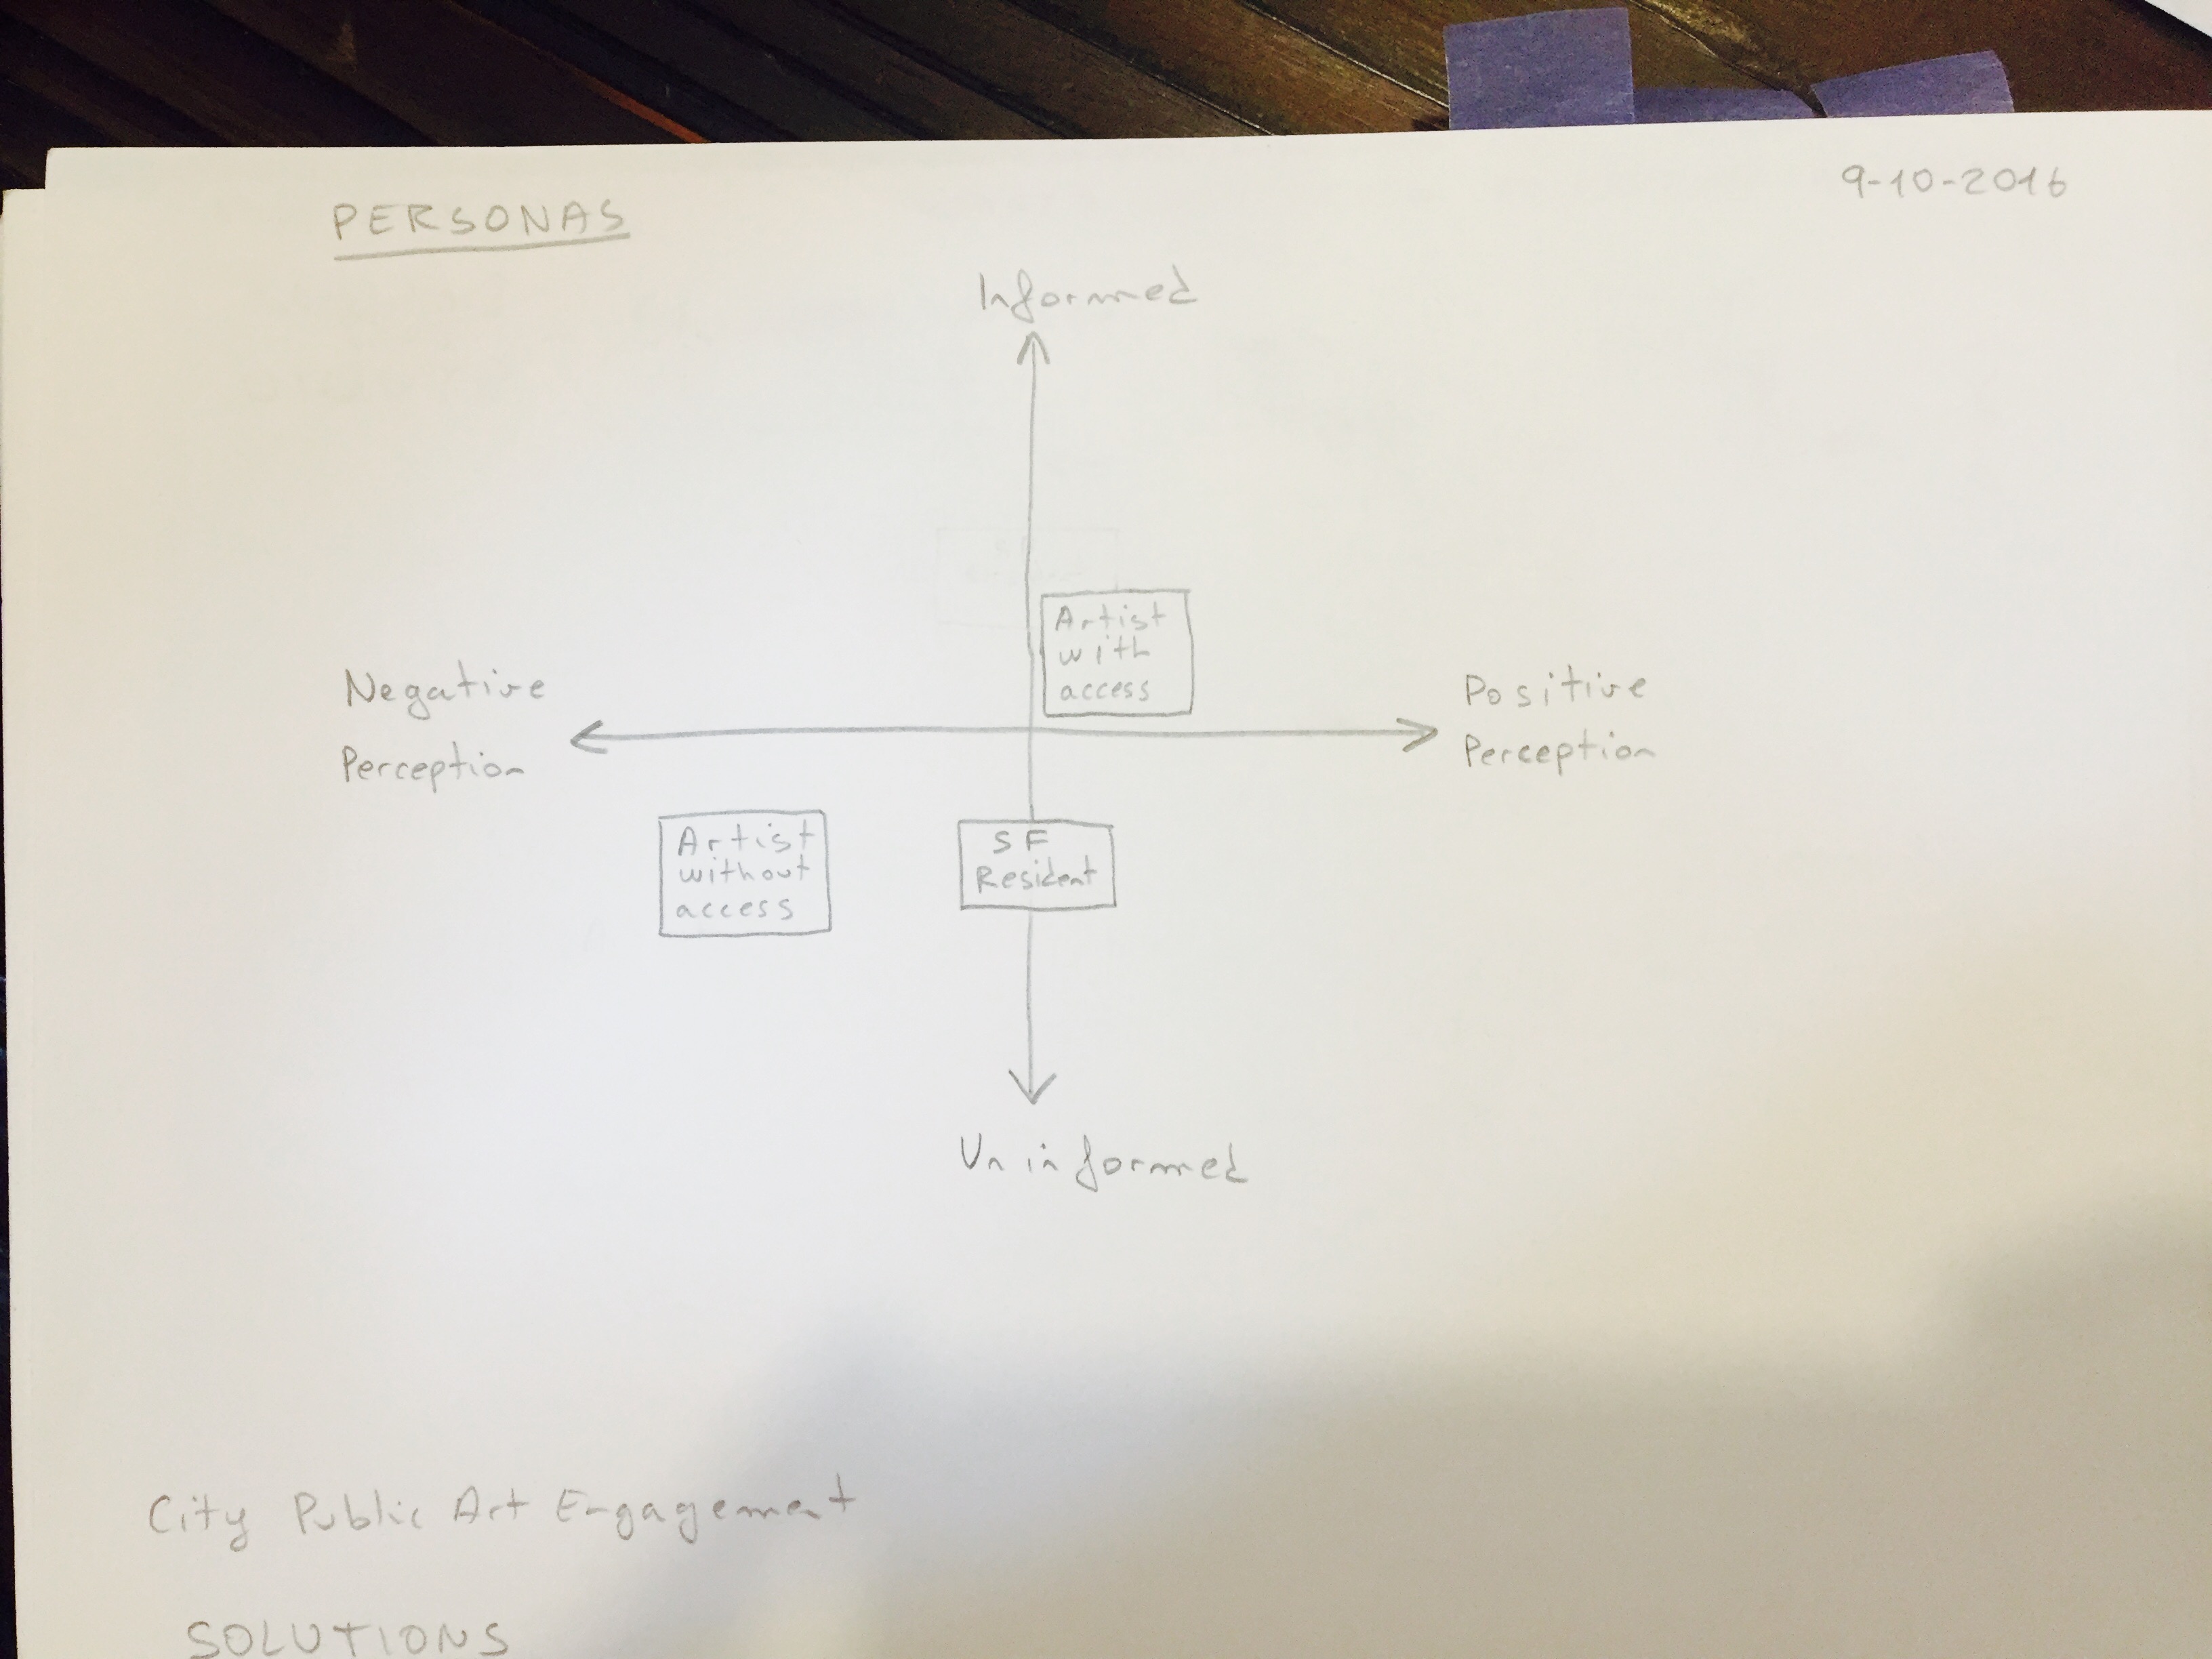 PERSONAS
9-10-2016
Informed
Artist
with
access
Negative
Perception
Positive
Perception
Artist
without
access
SF
Resident
Uninformed
City Public Art Engagement
SOLUTIONS